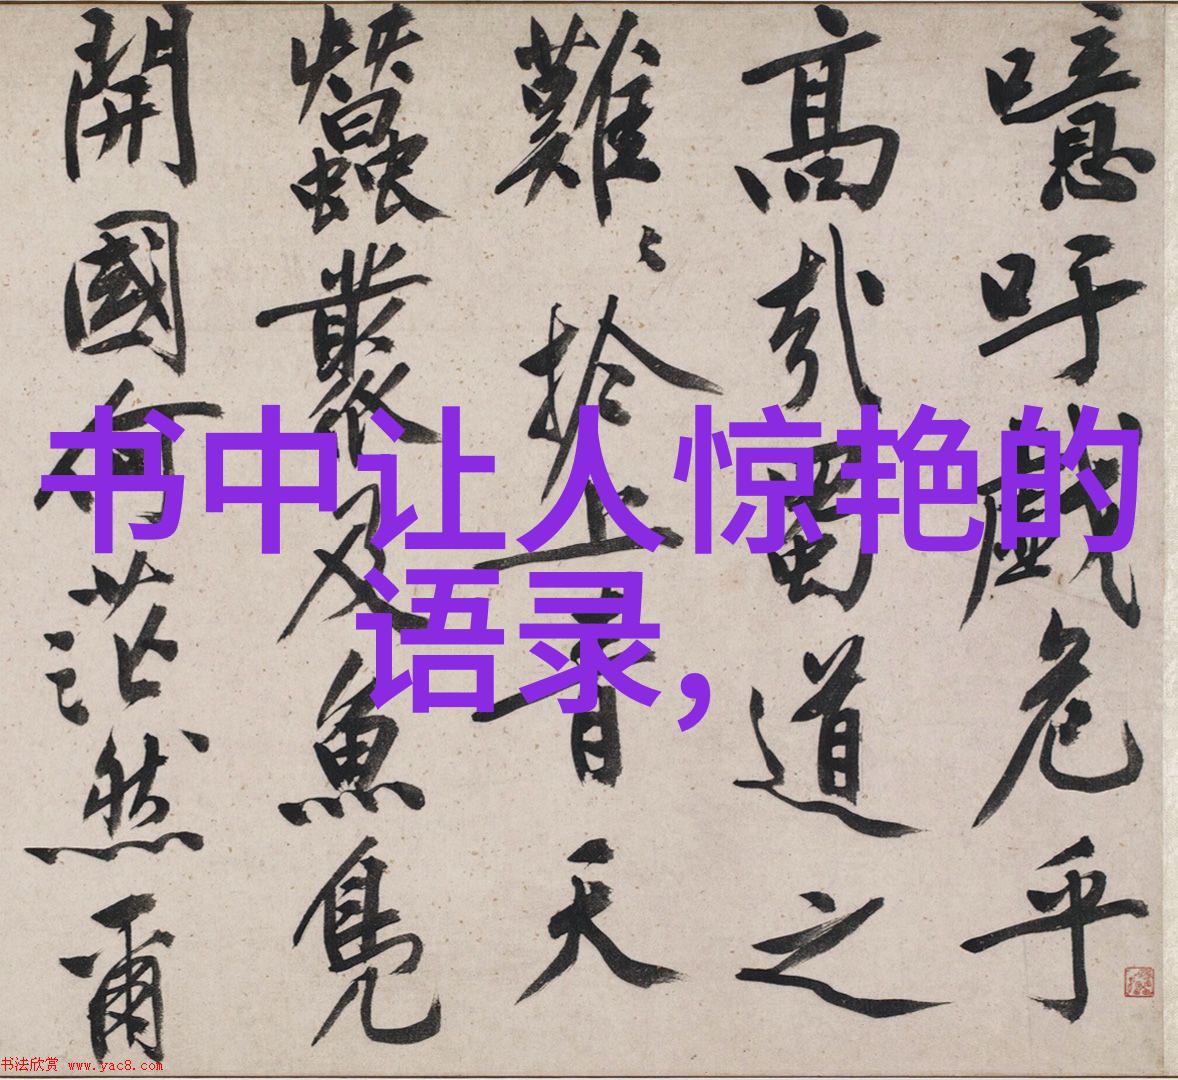 噫吁戲危乎
高哉蜀道之
難〻扵上青天
蠶叢及魚鳧
開國何茫然爾
书中让人惊艳的
语录,
书法欣赏 www.yac8.com